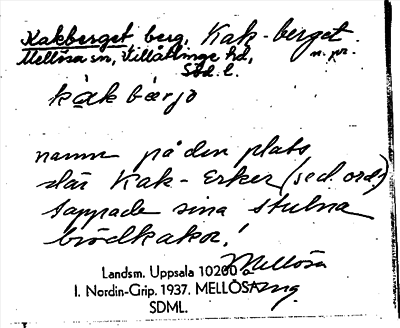 Kakberget berg, Kak-berget
Mellösa sn, Villåttinge hd, n. pr.
Söd. l.
kàk bærjo
namn på den plats
där Kak-Erker (sed. ord.)
tappade sina stulna
brödkakor!
Mellösa
Landsm. Uppsala 10200 a
I. Nordin-Grip. 1937. MELLÖSA
SDML.